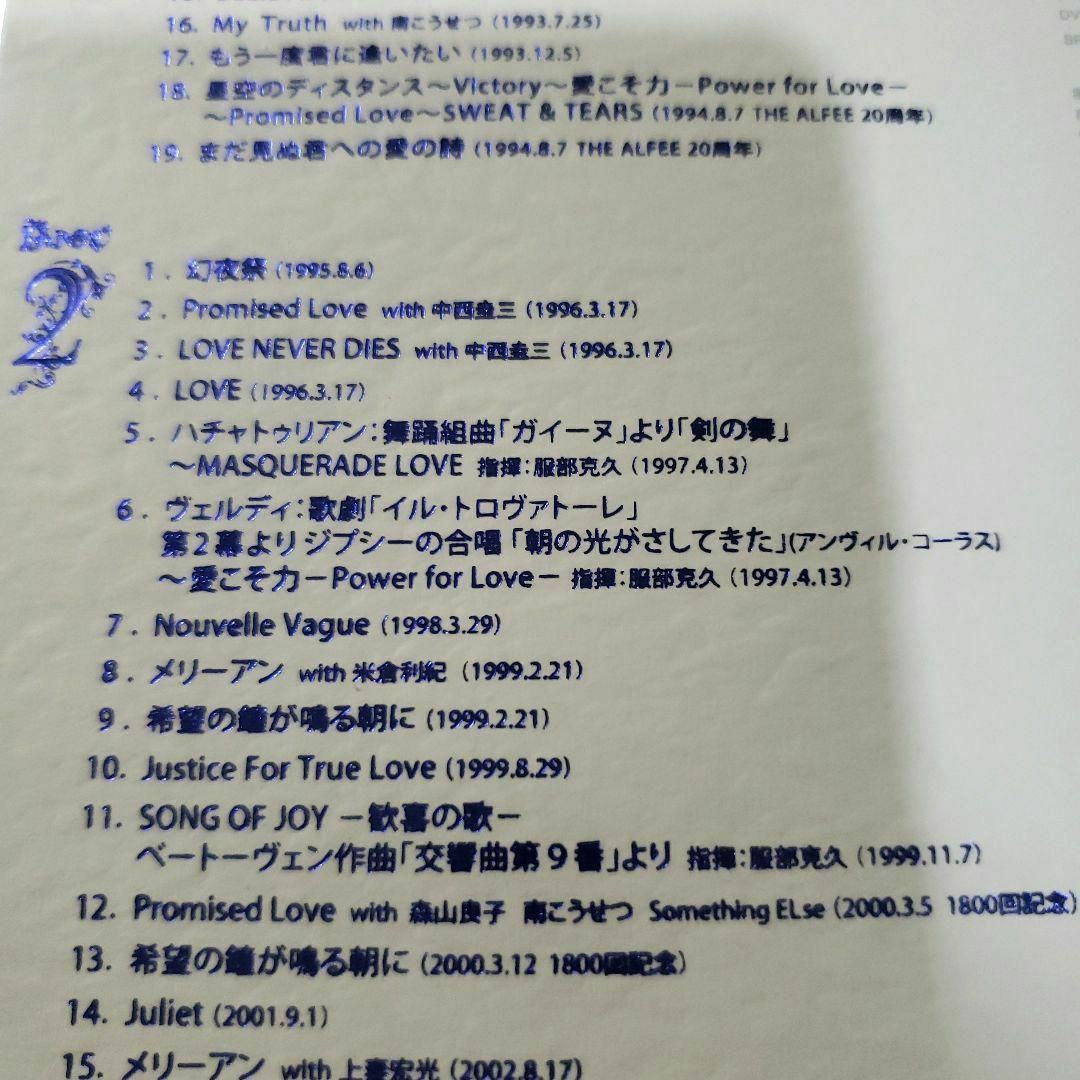 16. My Truth with 南こうせつ (1993.7.25)
17. もう一度君に逢いたい (1993.12.5)
18. 星空のディスタンス～Victory～愛こそ力－Power for Love－
～Promised Love～SWEAT & TEARS (1994.8.7 THE ALFEE 20周年)
19. まだ見ぬ君への愛の詩 (1994.8.7 THE ALFEE 20周年)
Disc
2
1. 幻夜祭 (1995.8.6)
2. Promised Love with 中西圭三 (1996.3.17)
3. LOVE NEVER DIES with 中西圭三 (1996.3.17)
4. LOVE (1996.3.17)
5. ハチャトゥリアン：舞踊組曲「ガイーヌ」より「剣の舞」
～MASQUERADE LOVE 指揮：服部克久 (1997.4.13)
6. ヴェルディ：歌劇「イル・トロヴァトーレ」
第2幕よりジプシーの合唱「朝の光がさしてきた」(アンヴィル・コーラス)
～愛こそ力－Power for Love－ 指揮：服部克久 (1997.4.13)
7. Nouvelle Vague (1998.3.29)
8. メリーアン with 米倉利紀 (1999.2.21)
9. 希望の鐘が鳴る朝に (1999.2.21)
10. Justice For True Love (1999.8.29)
11. SONG OF JOY －歓喜の歌－
ベートーヴェン作曲「交響曲第9番」より 指揮：服部克久 (1999.11.7)
12. Promised Love with 森山良子 南こうせつ Something ELse (2000.3.5 1800回記念)
13. 希望の鐘が鳴る朝に (2000.3.12 1800回記念)
14. Juliet (2001.9.1)
15. メリーアン with 上妻宏光 (2002.8.17)